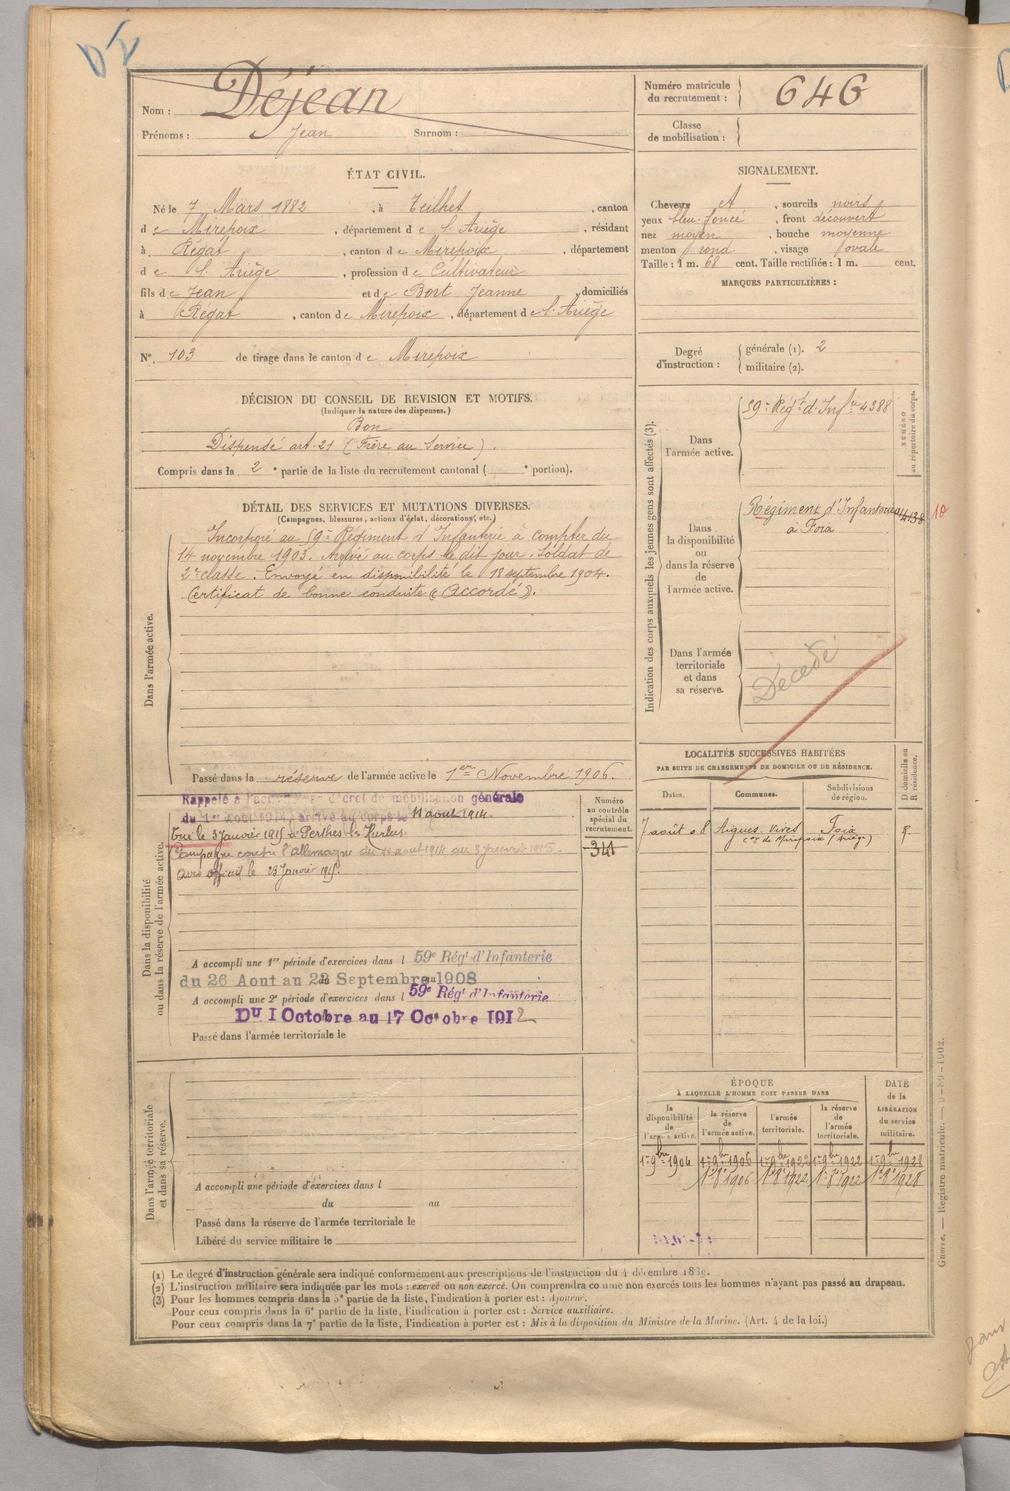 Nom : Déjean
Prénoms : Jean Surnom :
Numéro matricule du recrutement : 646
Classe de mobilisation :
ÉTAT CIVIL.
Né le 7 Mars 1882, à Teilhet, canton
de Mirepoix, département de l'Ariège, résidant
à Régat, canton de Mirepoix, département
de l'Ariège, profession de Cultivateur
fils de Jean et de Bort Jeanne, domiciliés
à Régat, canton de Mirepoix, département de l'Ariège
N° 103 de tirage dans le canton de Mirepoix
SIGNALEMENT.
Cheveux , sourcils noirs
yeux bleu foncé, front découvert
nez moyen, bouche moyenne
menton rond, visage ovale
Taille : 1 m. 68 cent. Taille rectifiée : 1 m. cent.
MARQUES PARTICULIÈRES :
Degré d'instruction :
générale (1). 2
militaire (2).
DÉCISION DU CONSEIL DE REVISION ET MOTIFS.
(Indiquer la nature des dispenses.)
Bon
Dispensé art. 21 (Frère au Service).
Compris dans la 2e partie de la liste du recrutement cantonal ( e portion).
DÉTAIL DES SERVICES ET MUTATIONS DIVERSES.
(Campagnes, blessures, actions d'éclat, décorations, etc.)
Dans l'armée active.
Incorporé au 59e Régiment d'Infanterie à compter du
14 novembre 1903. Arrivé au corps le dit jour. Soldat de
2e classe. Envoyé en disponibilité le 18 septembre 1904.
Certificat de bonne conduite (Accordé).
Passé dans la réserve de l'armée active le 1er Novembre 1906.
Indication des corps auxquels les jeunes gens sont affectés (3).
NUMÉRO au répertoire du corps.
Dans l'armée active.
59e Régt d'Infie 4388
Dans la disponibilité ou dans la réserve de l'armée active.
Régiment d'Infanterie
à Foix
10
Dans l'armée territoriale et dans sa réserve.
Décédé
Dans la disponibilité ou dans la réserve de l'armée active.
Rappelé à l'activité décret de mobilisation générale
du 1er août 1914, arrivé au corps le 11 août 1914.
Tué le 3 Janvier 1915 à Perthes les Hurlus
Campagne contre l'allemagne du 11 août 1914 au 3 janvier 1915.
Avis officiel le 23 Janvier 1915.
Numéro au contrôle spécial du recrutement.
341
A accompli une 1re période d'exercices dans l 59e Régt d'Infanterie
du 26 Aout au 22 Septembre 1908
A accompli une 2e période d'exercices dans l 59e Régt d'Infanterie
DU 1 Octobre au 17 Octobre 1912
Passé dans l'armée territoriale le
LOCALITÉS SUCCESSIVES HABITÉES
PAR SUITE DE CHANGEMENTS DE DOMICILE OU DE RÉSIDENCE.
Dates. Communes. Subdivisions de région. D domicile ou R résidence.
7 août 08 Aigues-Vives Foix R
con de Mirepoix (Ariège)
Dans l'armée territoriale et dans sa réserve.
A accompli une période d'exercices dans l
du au
Passé dans la réserve de l'armée territoriale le
Libéré du service militaire le
ÉPOQUE
À LAQUELLE L'HOMME DOIT PASSER DANS
la disponibilité de l'armée active.
la réserve de l'armée active.
l'armée territoriale.
la réserve de l'armée territoriale.
DATE de la LIBÉRATION du service militaire.
1er 9bre 1904 1er 9bre 1906 1er 9bre 1922 1er 9bre 1922 1er 9bre 1928
1er 8bre 1906 1er 8bre 1922 1er 8bre 1922 1er 8bre 1928
(1) Le degré d'instruction générale sera indiqué conformément aux prescriptions de l'instruction du 4 décembre 1889.
(2) L'instruction militaire sera indiquée par les mots : exercé ou non exercé. On comprendra comme non exercés tous les hommes n'ayant pas passé au drapeau.
(3) Pour les hommes compris dans la 5e partie de la liste, l'indication à porter est : Ajourné.
Pour ceux compris dans la 6e partie de la liste, l'indication à porter est : Service auxiliaire.
Pour ceux compris dans la 7e partie de la liste, l'indication à porter est : Mis à la disposition du Ministre de la Marine. (Art. 4 de la loi.)